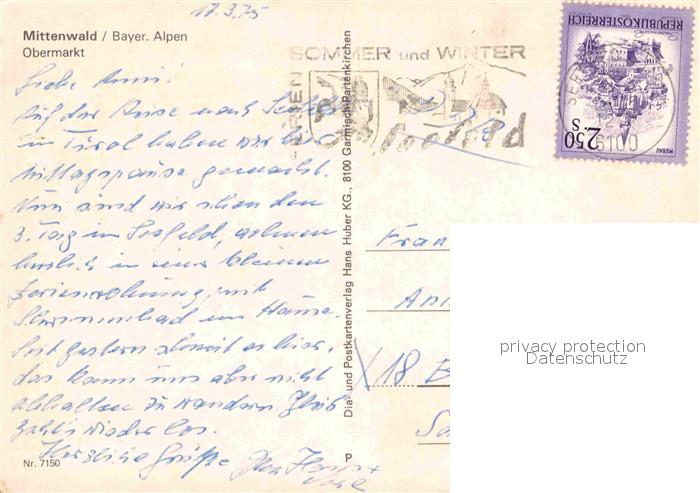 17.3.75
Mittenwald / Bayer. Alpen
Obermarkt
Liebe Anni!
Auf der Reise nach Seefeld
in Tirol haben wir hier
Mittagspause gemacht.
Nun sind wir schon den
3. Tag in Seefeld, wohnen
herrlich in einer kleinen
Ferienwohnung, mit
Schwimmbad im Hause.
Seit gestern schneit es hier,
das kann uns aber nicht
abhalten zu wandern. Gleich
geht's wieder los.
Herzliche Grüße
Nr. 7150
P
Dia- und Postkartenverlag Hans Huber KG., 8100 Garmisch-Partenkirchen
SOMMER und WINTER
FERIEN
Seefeld
REPUBLIK ÖSTERREICH
2.50
S
MURAU
6100
Fran
18
privacy protection
Datenschutz